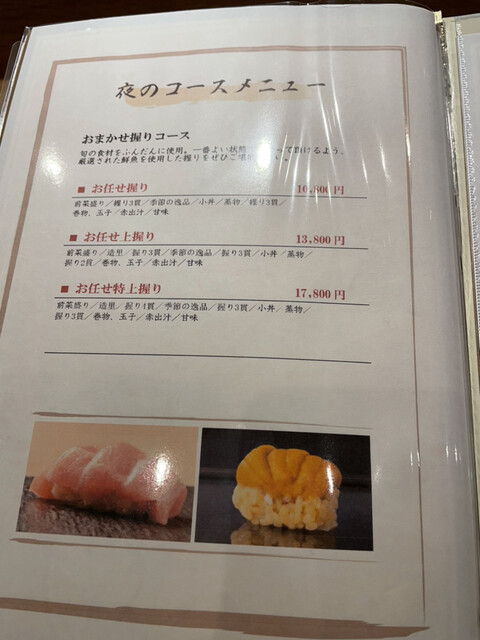 夜のコースメニュー
おまかせ握りコース
旬の食材をふんだんに使用。一番よい状態 って頂けるよう、
厳選された鮮魚を使用した握りをぜひご 。
■ お任せ握り 10,800円
前菜盛り／握り3貫／季節の逸品／小丼／蒸物／握り3貫／
巻物、玉子／赤出汁／甘味
■ お任せ上握り 13,800円
前菜盛り／造里／握り3貫／季節の逸品／握り3貫／小丼／蒸物／
握り2貫／巻物、玉子／赤出汁／甘味
■ お任せ特上握り 17,800円
前菜盛り／造里／握り4貫／季節の逸品／握り3貫／小丼／蒸物／
握り3貫／巻物、玉子／赤出汁／甘味